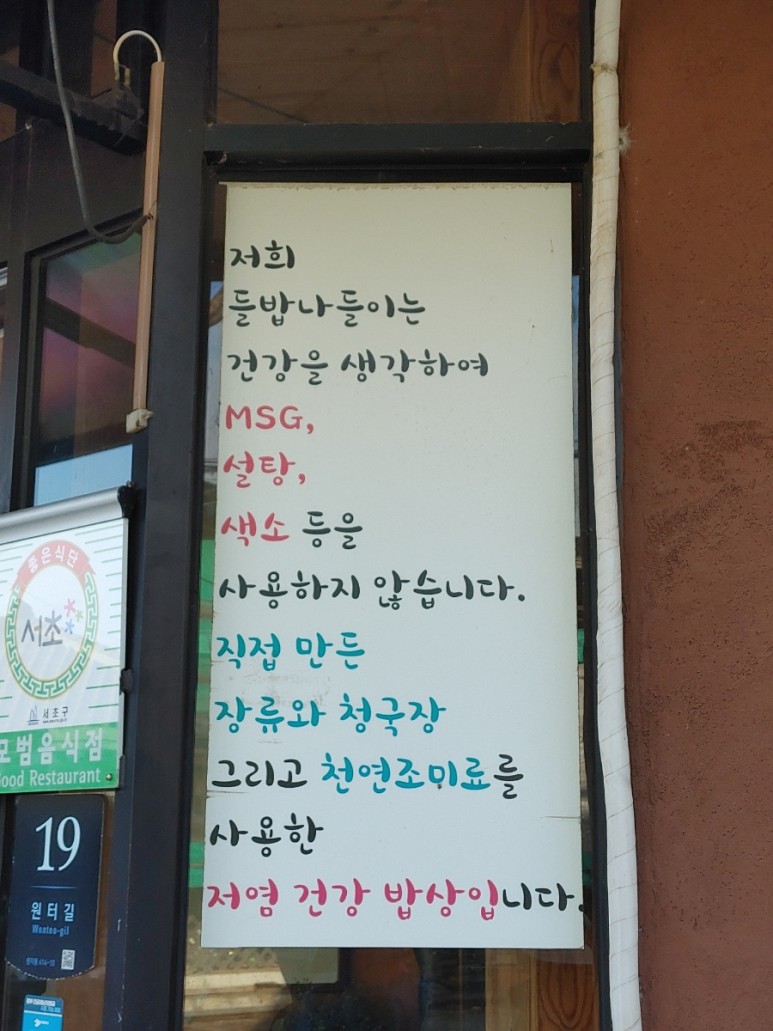 저희
들밥나들이는
건강을 생각하여
MSG,
설탕,
색소 등을
사용하지 않습니다.
직접 만든
장류와 청국장
그리고 천연조미료를
사용한
저염 건강 밥상입니다.
좋은식단
서초
서초구
모범음식점
Good Restaurant
19
원터길
Wonteo-gil